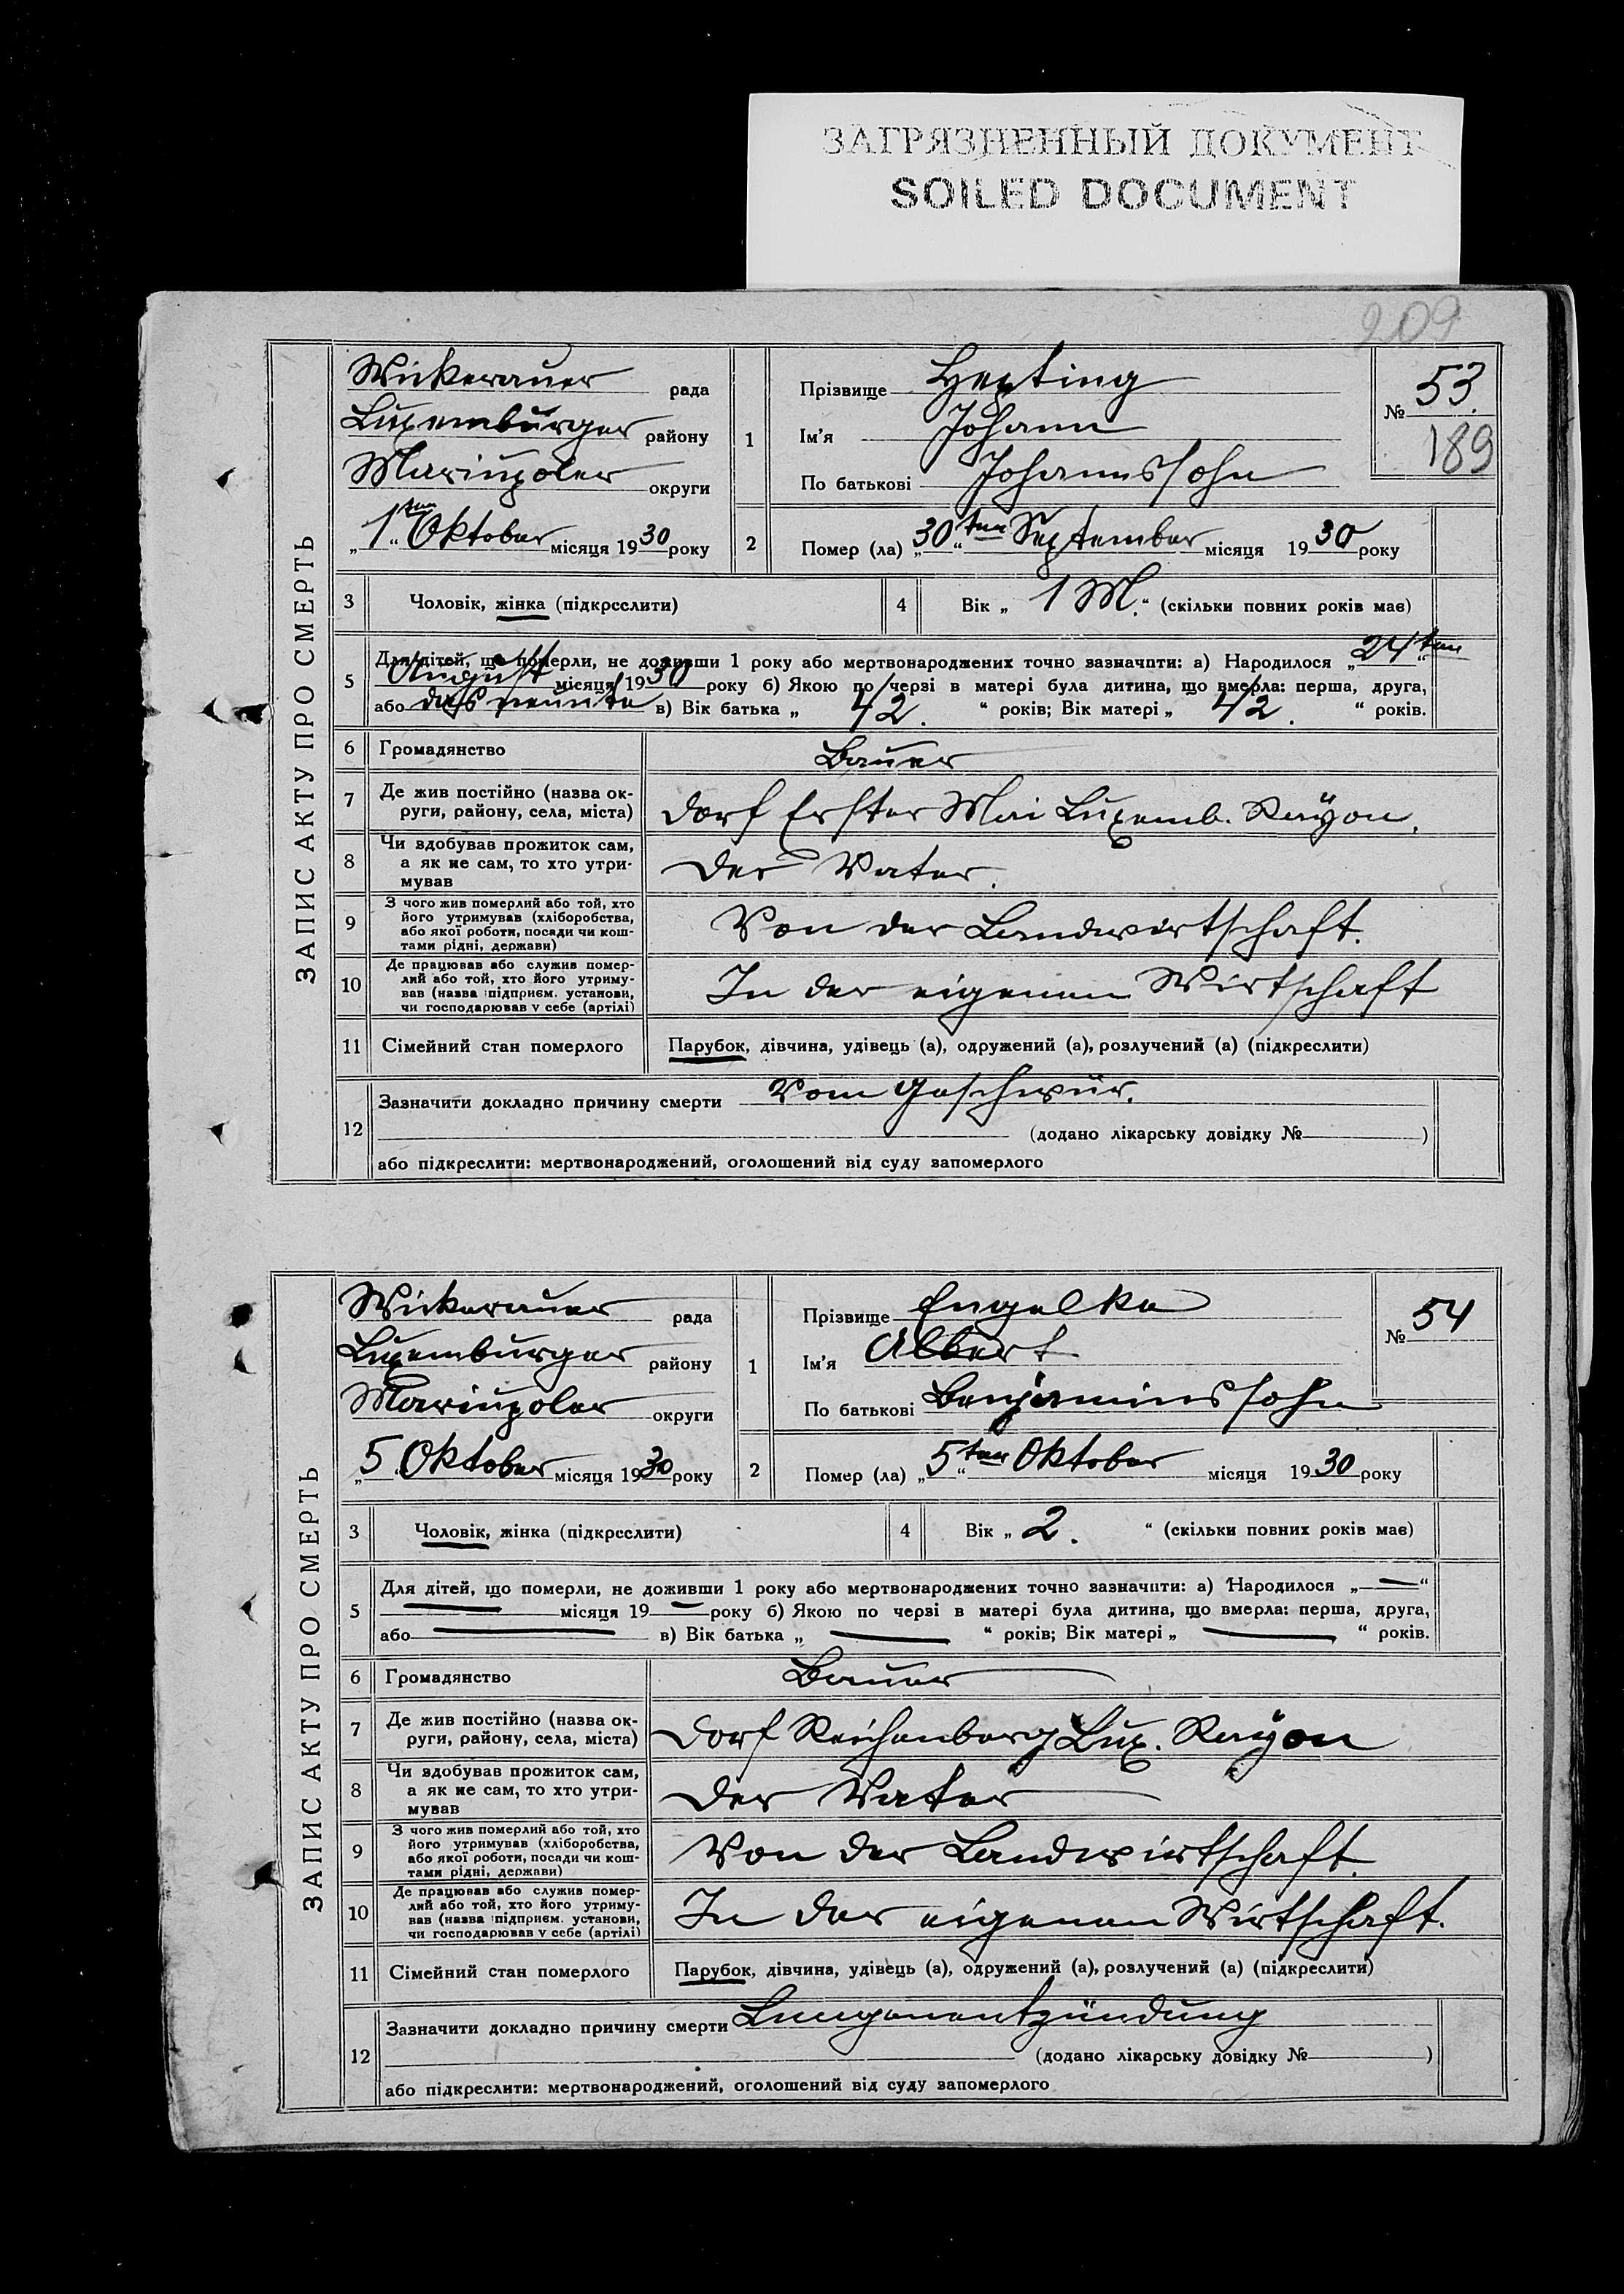 ЗАГРЯЗНЕННЫЙ ДОКУМЕНТ
SOILED DOCUMENT
209
ЗАПИС АКТУ ПРО СМЕРТЬ
Wickerauer рада
Luxemburger району
Mariupoler округи
„1ten“ Oktober місяця 1930 року
1
Прізвище Herting
Ім'я Johann
По батькові Johannssohn
№ 53.
189
2 Помер (ла) „30“ten September місяця 1930 року
3 Чоловік, жінка (підкреслити)
4 Вік „ 1 M. “ (скільки повних років має)
5 Для дітей, що померли, не доживши 1 року або мертвонароджених точно зазначити: а) Народилося „24ten“
August місяця 1930 року б) Якою по черзі в матері була дитина, що вмерла: перша, друга,
або das neunte в) Вік батька „ 42. “ років; Вік матері „ 42. “ років.
6 Громадянство Bauer
7 Де жив постійно (назва ок-
руги, району, села, міста) Dorf Erster Mai Luxemb. Rayon.
8 Чи здобував прожиток сам,
а як не сам, то хто утри-
мував Der Vater.
9 З чого жив померлий або той, хто
його утримував (хліборобства,
або якої роботи, посади чи кош-
тами рідні, держави) Von der Landwirtschaft.
10 Де працював або служив помер-
лий або той, хто його утриму-
вав (назва підприєм. установи,
чи господарював у себе (артілі) In der eigenen Wirtschaft
11 Сімейний стан померлого Парубок, дівчина, удівець (а), одружений (а), розлучений (а) (підкреслити)
12 Зазначити докладно причину смерти Vom Geschwür.
(додано лікарську довідку № )
або підкреслити: мертвонароджений, оголошений від суду запомерлого
ЗАПИС АКТУ ПРО СМЕРТЬ
Wickerauer рада
Luxemburger району
Mariupoler округи
„5“ Oktober місяця 1930 року
1
Прізвище Engelke
Ім'я Albert
По батькові Benjaminssohn
№ 54
2 Помер (ла) „5ten“ Oktober місяця 1930 року
3 Чоловік, жінка (підкреслити)
4 Вік „ 2. “ (скільки повних років має)
5 Для дітей, що померли, не доживши 1 року або мертвонароджених точно зазначити: а) Народилося „—“
— місяця 19— року б) Якою по черві в матері була дитина, що вмерла: перша, друга,
або — в) Вік батька „ — “ років; Вік матері „ — “ років.
6 Громадянство Bauer
7 Де жив постійно (назва ок-
руги, району, села, міста) Dorf Reichenberg Lux. Rayon
8 Чи здобував прожиток сам,
а як не сам, то хто утри-
мував Der Vater
9 З чого жив померлий або той, хто
його утримував (хліборобства,
або якої роботи, посади чи кош-
тами рідні, держави) Von der Landwirtschaft.
10 Де працював або служив помер-
лий або той, хто його утриму-
вав (назва підприєм. установи,
чи господарював у себе (артілі) In der eigenen Wirtschaft.
11 Сімейний стан померлого Парубок, дівчина, удівець (а), одружений (а), розлучений (а) (підкреслити)
12 Зазначити докладно причину смерти Lungenentzündung
(додано лікарську довідку № )
або підкреслити: мертвонароджений, оголошений від суду запомерлого